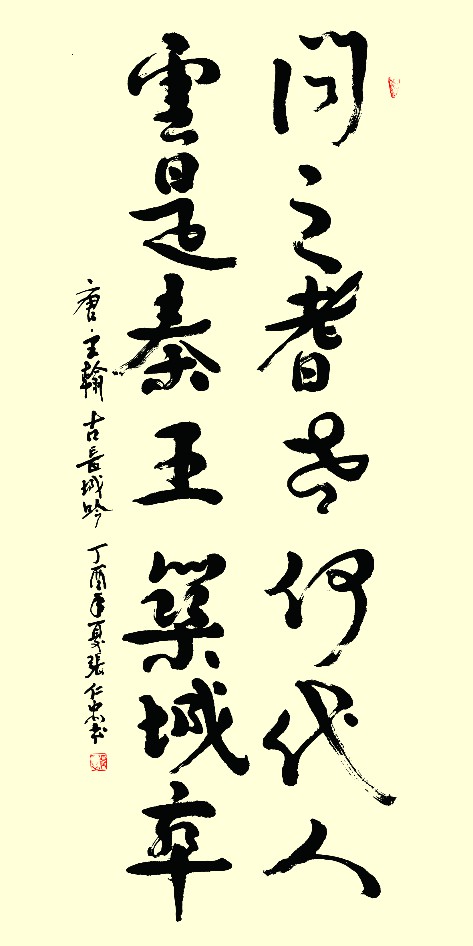 問之耆老何代人
雲是秦王築城卒
唐·王翰 古長城吟 丁酉年夏張仁忠书